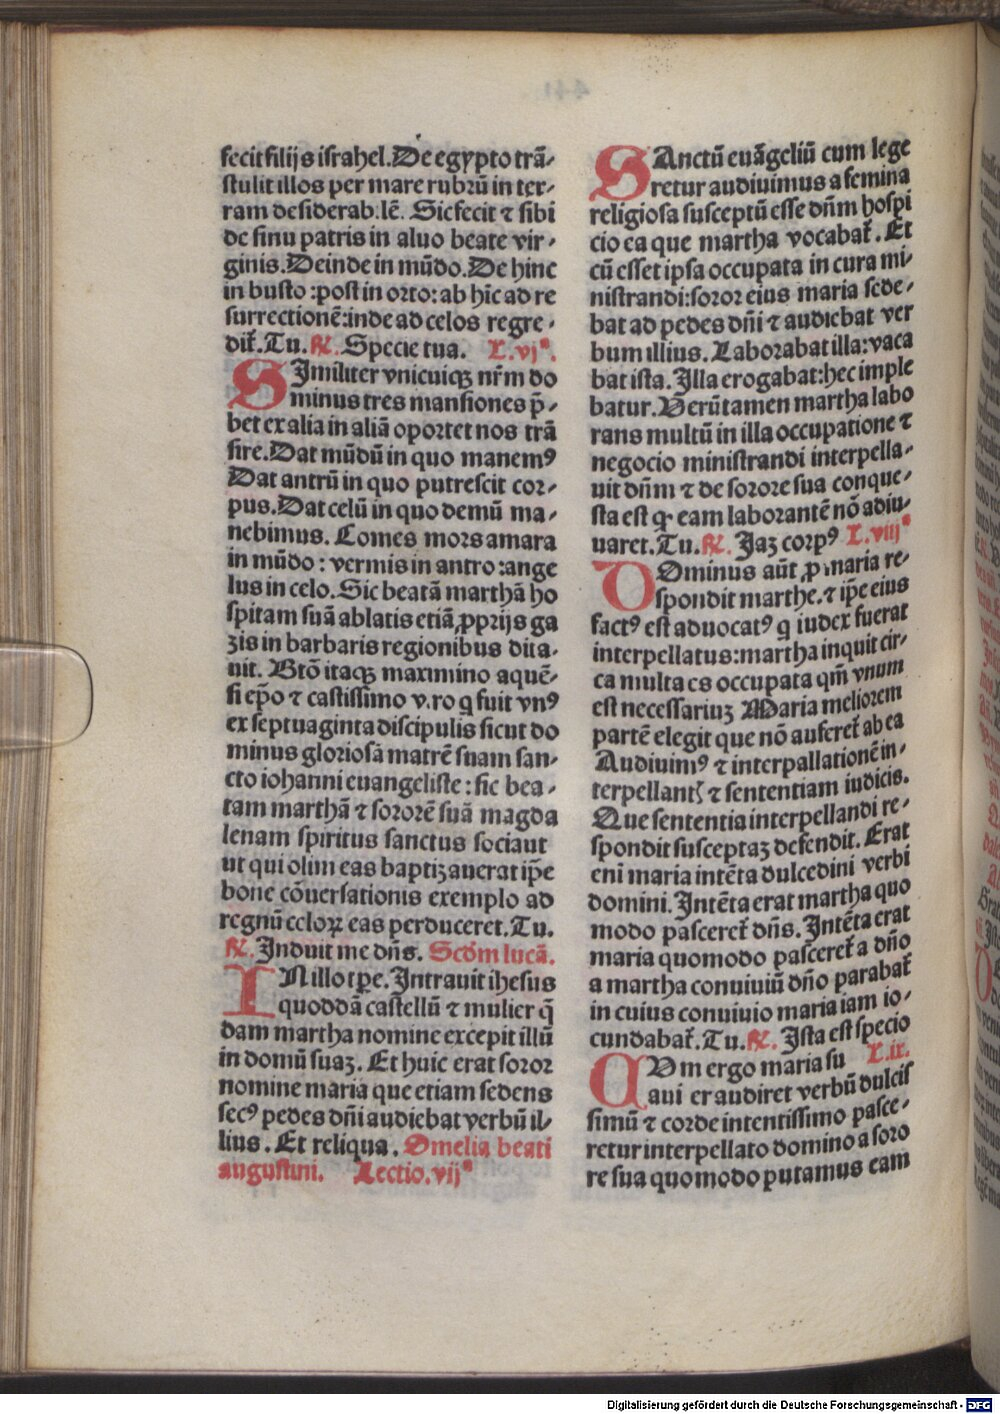 fecit filijs israhel. De egypto trā-
stulit illos per mare rubrū in ter-
ram desiderab:lē. Sic fecit ⁊ sibi
de sinu patris in aluo beate vir-
ginis. Deinde in mūdo. De hinc
in busto : post in orto: ab hīc ad re
surrectionē: inde ad celos regre-
dit̄. Tu. ℟. Specie tua. L. vjª.
SJmiliter vnicuiqꝫ nr̄m do
minus tres mansiones p̄-
bet ex alia in aliā oportet nos trā
sire. Dat mūdū in quo manemꝰ
Dat antrū in quo putrescit cor-
pus. Dat celū in quo demū ma-
nebimus. Comes mors amara
in mūdo : vermis in antro : ange
lus in celo. Sic beatā marthā ho
spitam suā ablatis etiā ꝓprijs ga
zis in barbaris regionibus dita-
uit. Btō itaqꝫ maximino aquē-
si ep̄o ⁊ castissimo v.ro q fuit vnꝰ
ex septuaginta discipulis sicut do
minus gloriosā matrē suam san-
cto iohanni euangeliste : sic bea-
tam marthā ⁊ sororē suā magda
lenam spiritus sanctus sociaut
ut qui olim eas baptizauerat ip̄e
bone cōuersationis exemplo ad
regnū celoꝝ eas perduceret. Tu.
℟. Induit me dn̄s. Scd̄m lucā.
INillo tp̄e. Intrauit ihesus
quoddā castellū ⁊ mulier q̄
dam martha nomine excepit illū
in domū suaꝫ. Et huic erat soror
nomine maria que etiam sedens
secꝰ pedes dn̄i audiebat verbū il-
lius. Et reliqua. Omelia beati
augustini. Lectio. vijª
SAnctū euāgeliū cum lege
retur audiuimus a femina
religiosa susceptū esse dn̄m hospi
cio ea que martha vocabat̄. Et
cū esset ipsa occupata in cura mi-
nistrandi: soror eius maria sede-
bat ad pedes dn̄i ⁊ audiebat ver
bum illius. Laborabat illa: vaca
bat ista. Illa erogabat: hec imple
batur. Verūtamen martha labo
rans multū in illa occupatione ⁊
negocio ministrandi interpella-
uit dn̄m ⁊ de sorore sua conque-
sta est ꝙ eam laborantē nō adiu-
uaret. Tu. ℟. Jaꝫ corpꝰ L. viijª
DOminus aūt ꝓ maria re-
spondit marthe. ⁊ ip̄e eius
factꝰ est aduocatꝰ q iudex fuerat
interpellatus: martha inquit cir-
ca multa es occupata qm̄ vnum
est necessariuꝫ Maria meliorem
partē elegit que nō auferet̄ ab ea
Audiuimꝰ ⁊ interpallationē in-
terpellantꝭ ⁊ sententiam iudicis.
Que sententia interpellandi re-
spondit susceptaꝫ defendit. Erat
eni maria intēta dulcedini verbi
domini. Intēta erat martha quo
modo pasceret̄ dn̄s. Intēta erat
maria quomodo pasceret̄ a dn̄o
a martha conuiuiū dn̄o parabat̄
in cuius conuiuio maria iam io-
cundabat̄. Tu. ℟. Ista est specio
CVm ergo maria su L. ix.
aui er audiret verbū dulcis
simū ⁊ corde intentissimo pasce-
retur interpellato domino a soro
re sua quomodo putamus eam
Digitalisierung gefördert durch die Deutsche Forschungsgemeinschaft - DFG